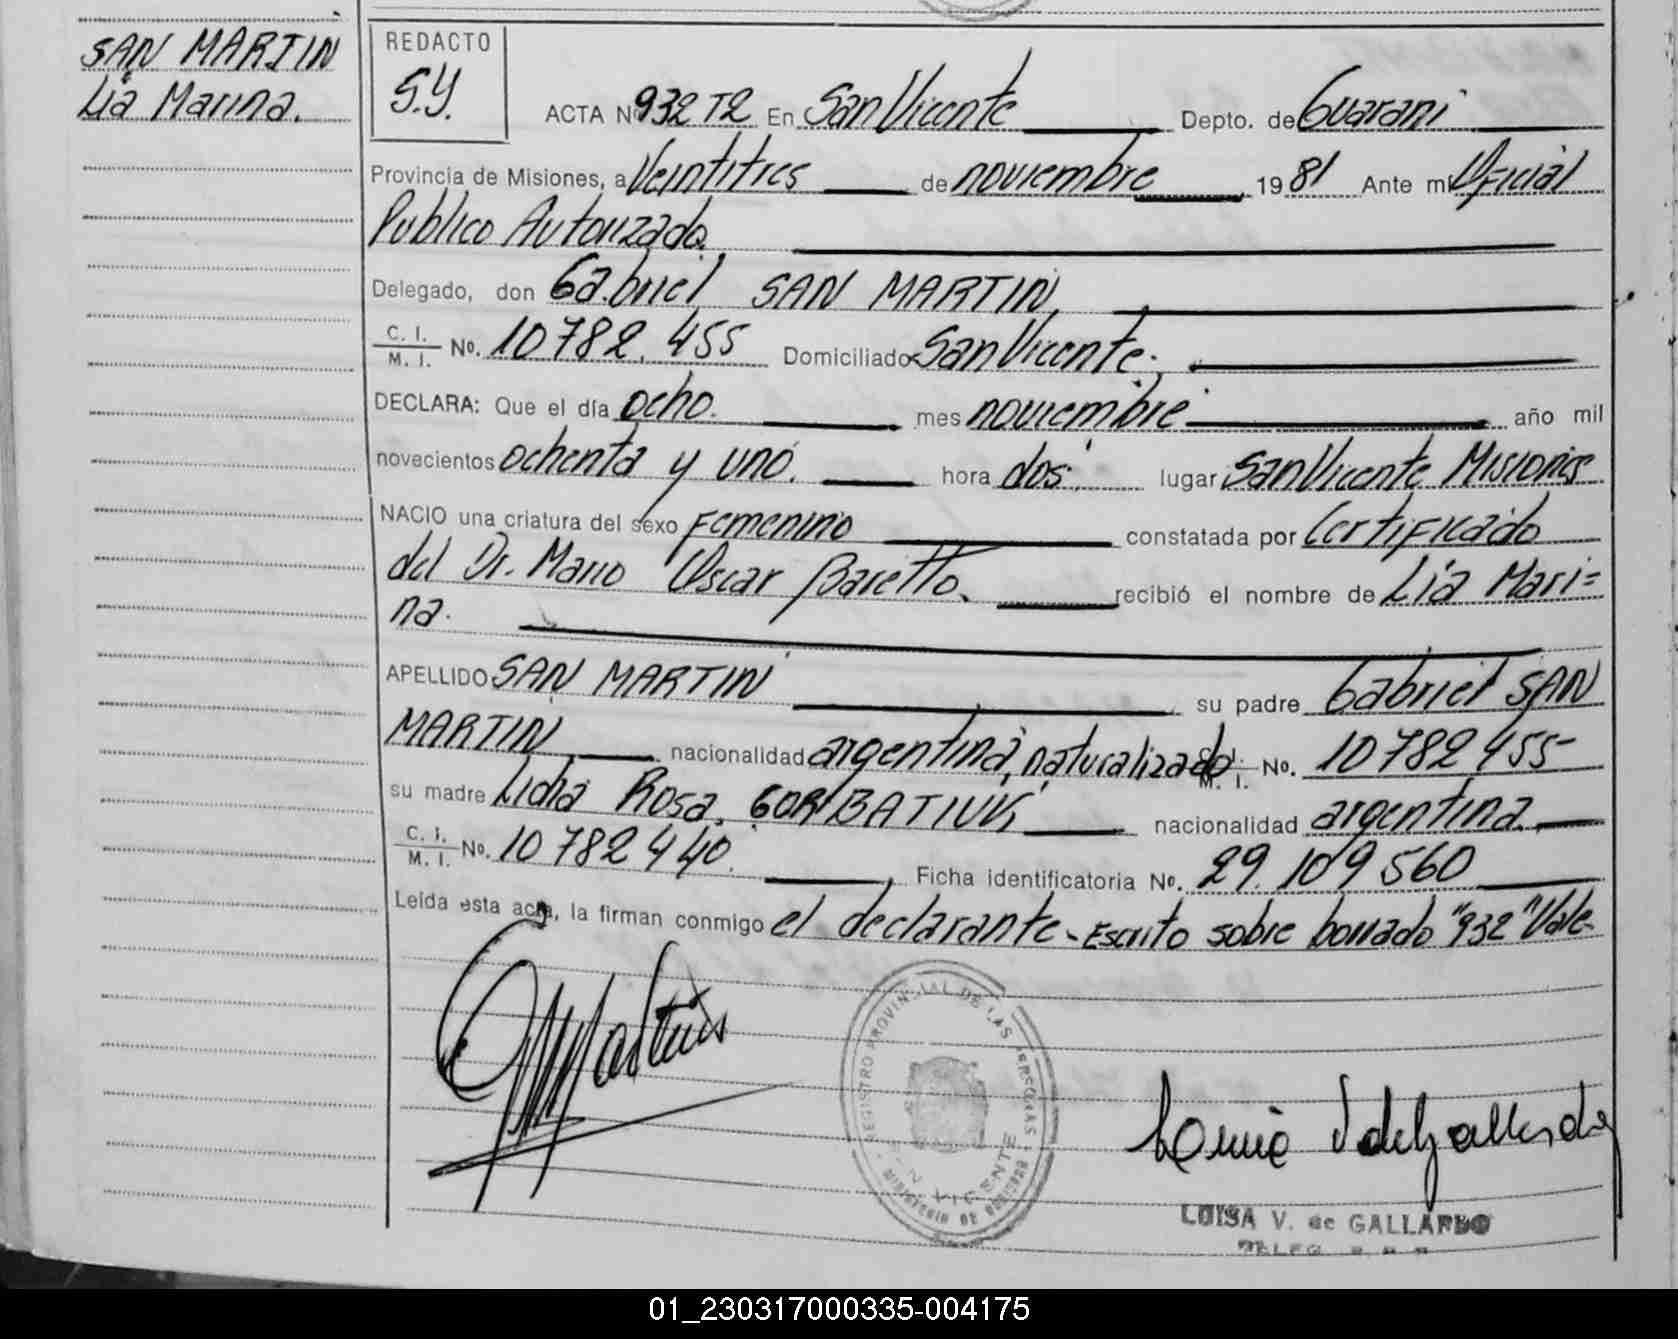 SAN MARTIN
Lia Marina.
REDACTO
S.Y.
ACTA Nº 932 T2 En San Vicente Depto. de Guarani
Provincia de Misiones, a Veintitres de noviembre 1981 Ante mi Oficial
Publico Autorizado.
Delegado, don Gabriel SAN MARTIN,
C. I. / M. I. Nº. 10782.455 Domiciliado San Vicente.
DECLARA: Que el día ocho. mes noviembre año mil
novecientos ochenta y uno. hora dos. lugar San Vicente Misiones
NACIO una criatura del sexo Femenino constatada por Certificado
del Dr. Mario Oscar Baretto. recibió el nombre de Lia Mari=
na.
APELLIDO SAN MARTIN su padre Gabriel SAN
MARTIN, nacionalidad argentina, naturalizado M. I. Nº. 10782455-
su madre Lidia Rosa GORBATIUK, nacionalidad argentina.
C. I. / M. I. Nº. 10782440. Ficha identificatoria Nº. 29.109560
Leída esta acta, la firman conmigo el declarante - Escrito sobre borrado "932" Vale.
REGISTRO PROVINCIAL DE LAS PERSONAS
SAN VICENTE
MINISTERIO DE GOBIERNO
LUISA V. de GALLARDO
01_230317000335-004175